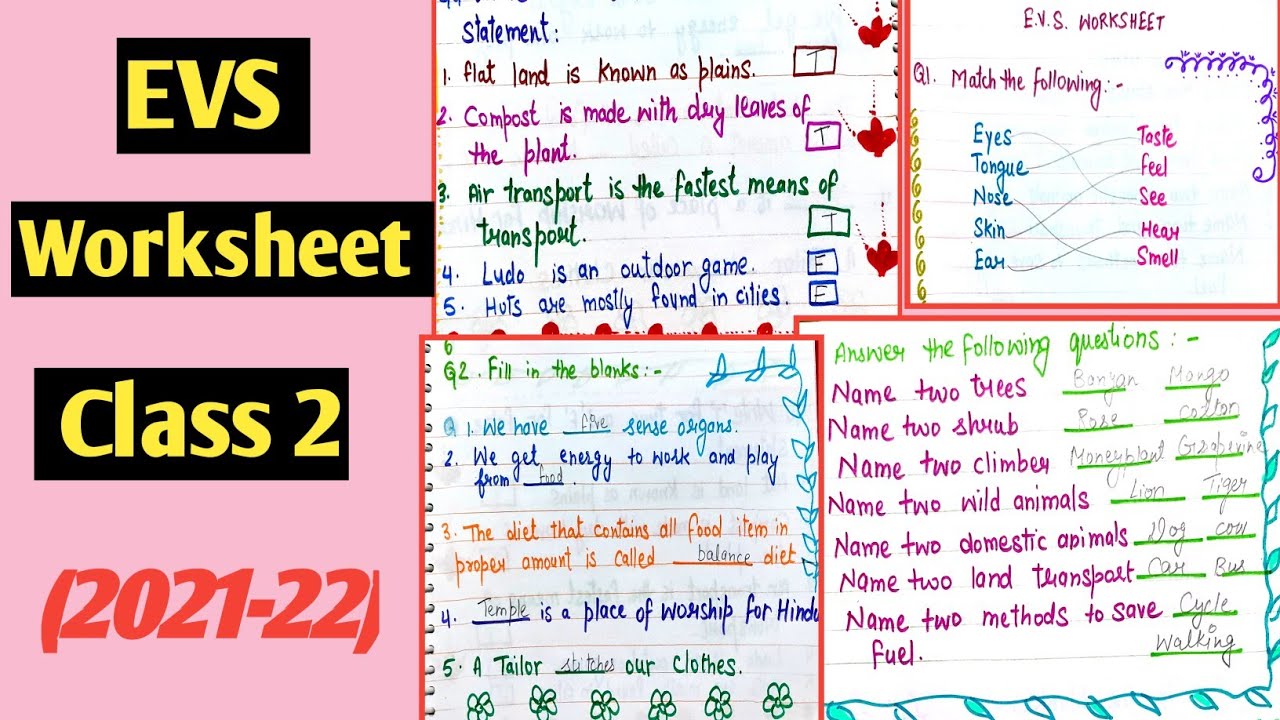 EVS
Worksheet
Class 2
(2021-22)
statement:
1. flat land is known as plains. T
2. Compost is made with dry leaves of
the plant. T
3. Air transport is the fastest means of
transport. T
4. Ludo is an outdoor game. F
5. Huts are mostly found in cities. F
E.V.S. WORKSHEET
Q1. Match the following:-
Eyes Taste
Tongue feel
Nose See
Skin Hear
Ear Smell
6
Q2. Fill in the blanks:-
Q 1. We have five sense organs.
2. We get energy to work and play
from food.
3. The diet that contains all food item in
proper amount is called balance diet
4. Temple is a place of worship for Hindu
5. A Tailor stitches our clothes.
Answer the following questions:-
Name two trees Banyan Mango
Name two shrub Rose castor
Name two climber Moneyplant Grapevine
Name two wild animals Lion Tiger
Name two domestic animals Dog cow
Name two land transport Car Bus
Name two methods to save Cycle
fuel. Walking